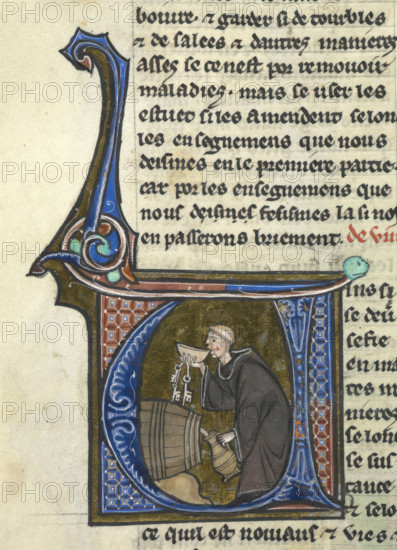 boiure · ⁊ garder si de tourbles
⁊ de salees ⁊ dautres manieres
asses se ce nest por remouoir
maladies · mais se user les
estuet si les amendent selonc
les enseignemens que nous
deisimes en le premiere partie ·
car por les enseignemens que
nous deisimes fesismes la si no
en passerons briement. de vin
ins si
se deu
en ma
tes m
nieres
se lonc
se sus
tance
⁊ selo
ce quil est nouiaus ⁊ vies ·